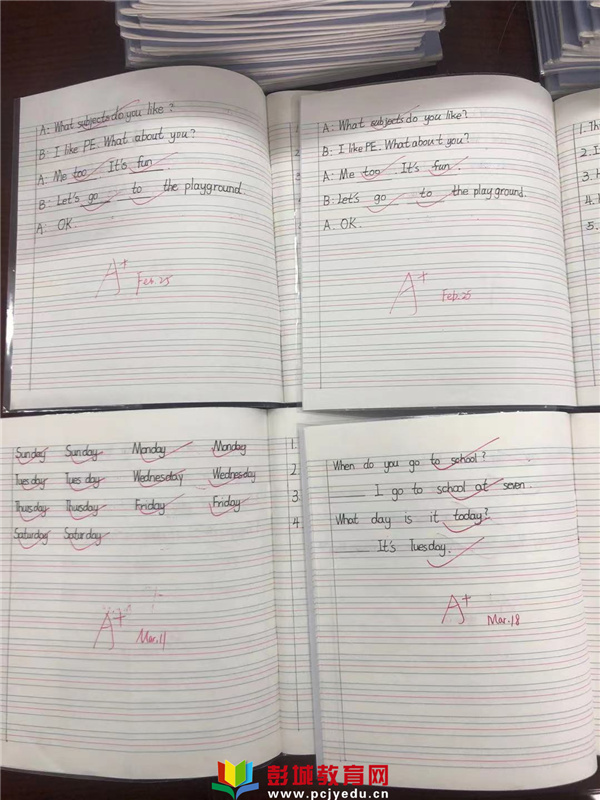 A: What subjects do you like?
B: I like PE. What about you?
A: Me too. It's fun
B: Let's go to the playground
A: OK.
A+
Feb.25
A: What subjects do you like?
B: I like PE. What about you?
A: Me too. It's fun.
B: Let's go to the playground.
A. OK.
A+
Feb.25
1. Th
2. I
3.
4.
5.
Sunday Sunday Monday Monday
Tuesday Tuesday Wednesday Wednesday
Thursday Thursday Friday Friday
Saturday Saturday
A+
Mar.11
1
2
3
4
When do you go to school?
I go to school at seven.
What day is it today?
It's Tuesday.
A+
Mar.18
彭城教育网
www.pcjyedu.cn